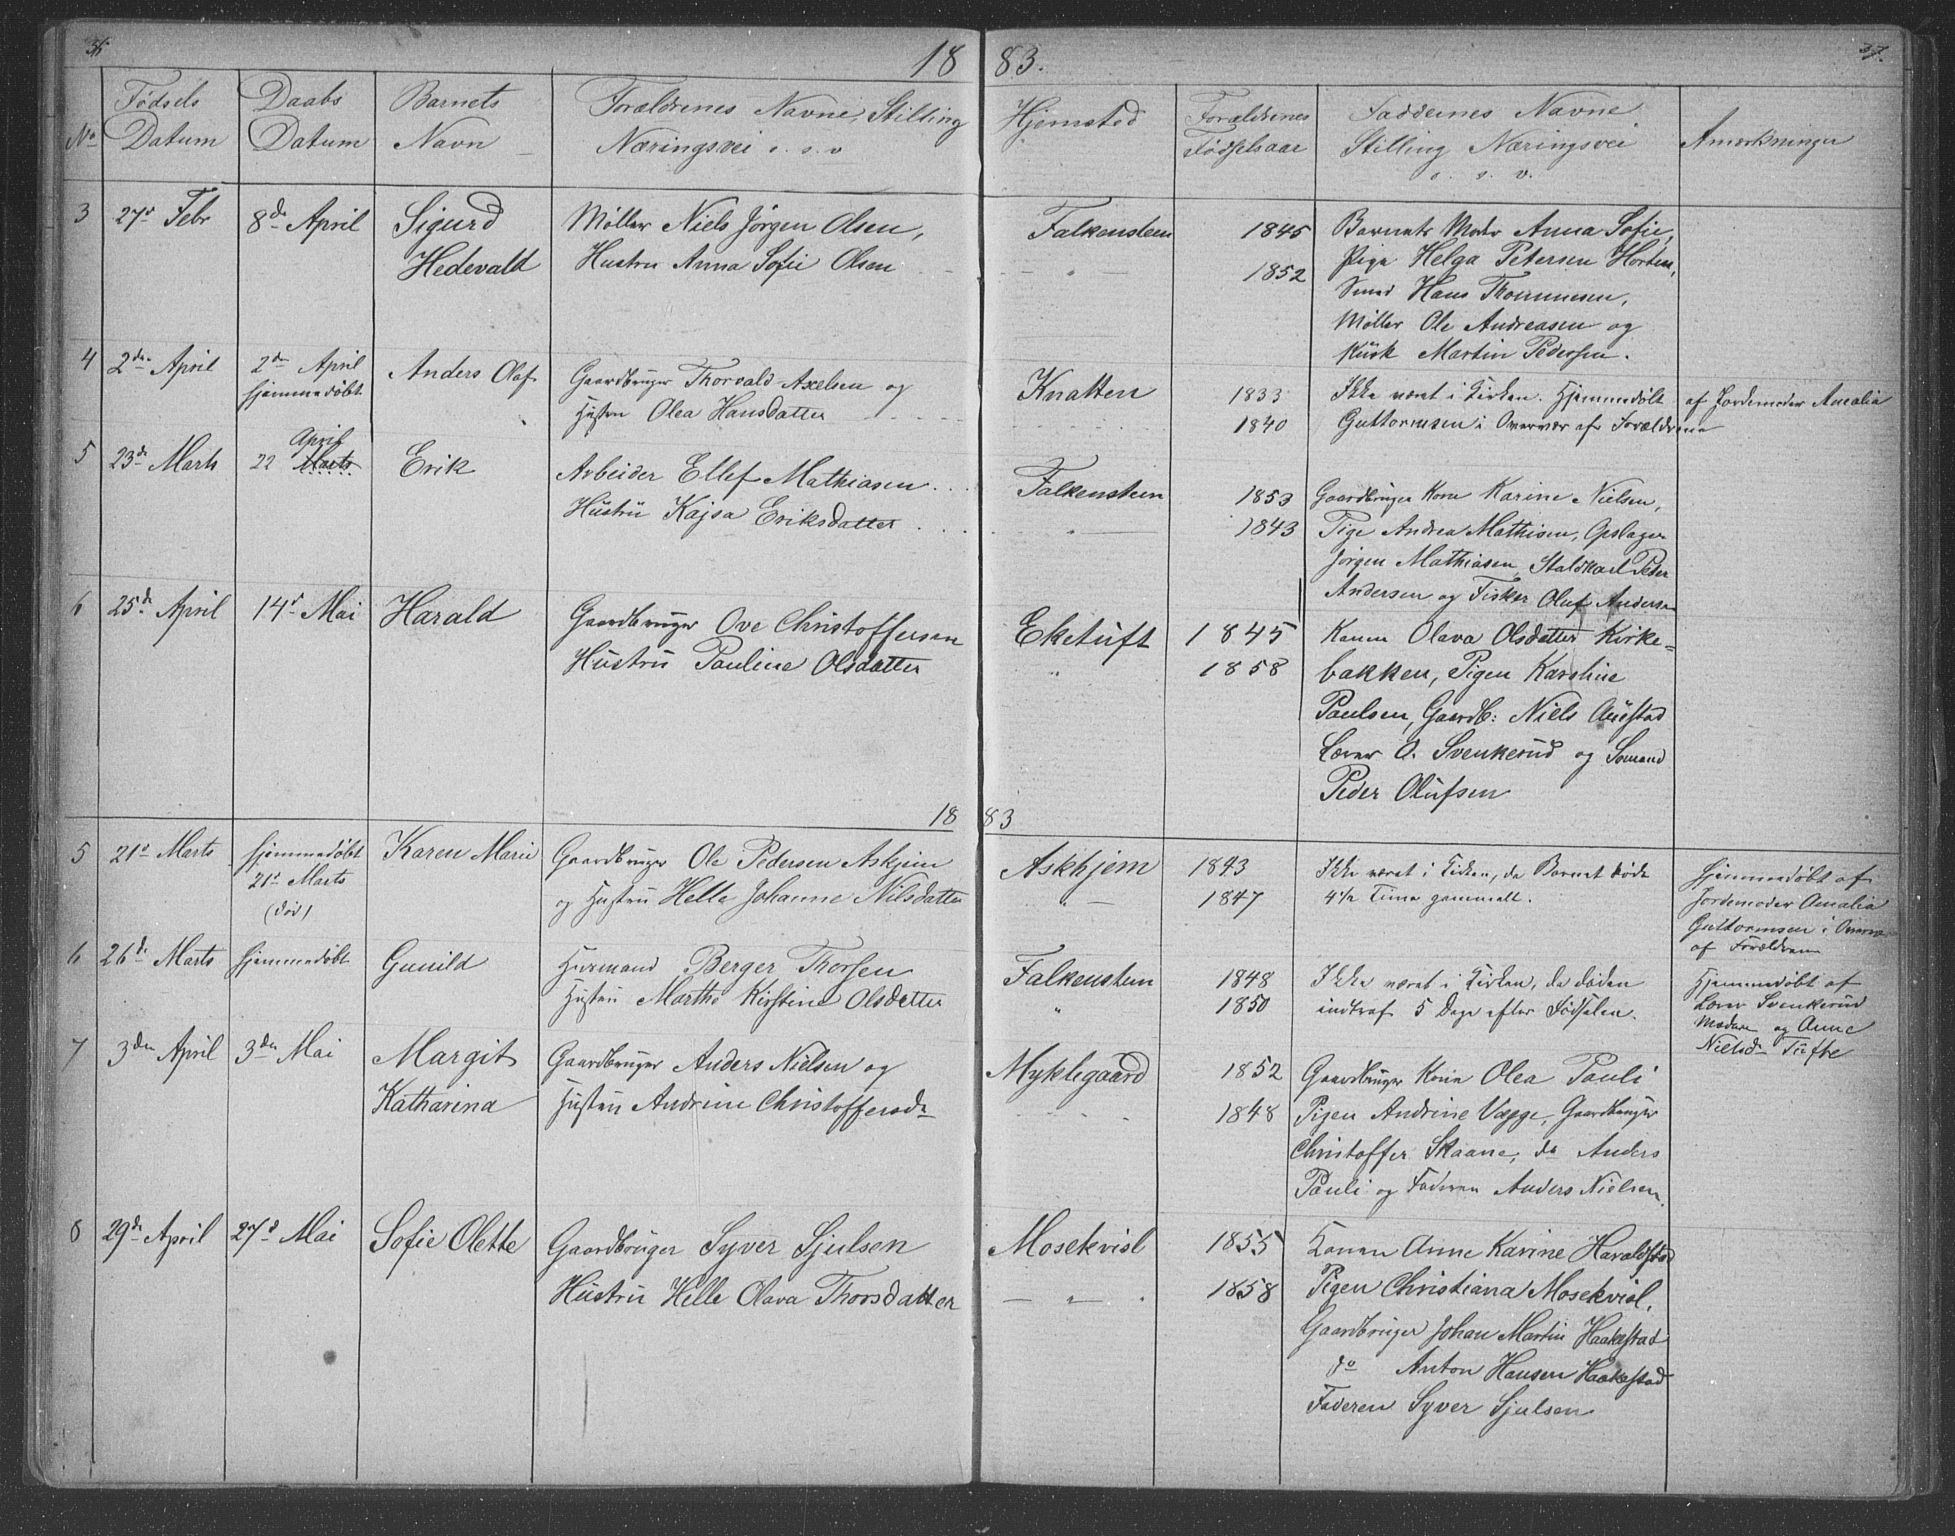 36
18 83.
37.
No
Fødsels Datum
Daabs Datum
Barnets Navn
Forældrenes Navne, Stilling
Næringsvei o. s. v
Hjemsted
Forældrenes Fødselsaar
Faddernes Navne
Stilling Næringsvei
o. s. v.
Anmærkninger
3 27de Febr 8de April Sigurd Hedevald
Møller Niels Jørgen Olsen,
Hustru Anna Sofie Olsen
Falkensteen 1845
— " — 1852
Barnets Moder Anna Sofie,
Pige Helga Petersen Horten,
Smed Hans Thommesen,
Møller Ole Andreasen og
Kusk Martin Pedersen.
4 2den April 2den April hjemmedøbt Anders Olaf
Gaardbruger Thorvald Axelsen og
Hustru Olea Hansdatter
Knatten 1833
1840
Ikke været i Kirken. Hjemmedøbt af Jordemoder Amalia
Guttormsen i Overvær af Forældrene
5 23de Marts 22 April Marts Erik
Arbeider Ellef Mathiasen
Hustru Kajsa Eriksdatter
Falkensteen 1853
" 1843
Gaardbruger Kone Karine Nielsen,
Pige Andrea Mathisen, Opslager
Jørgen Mathiasen, Staldkarl Peder
Andersen og Fisker Oluf Andersen
6 25de April 14de Mai Harald
Gaardbruger Ove Christoffersen
Hustru Pauline Olsdatter
Eketuft 1845
" 1858
Konen Olava Olsdatter Kirke=
bakken, Pigen Karoline
Paulsen, Gaardb: Niels Auestad
Lærer O. Svenkerud og Sømand
Peder Olufsen
18 83
5 21de Marts hjemmedøbt 21de Marts (død) Karen Marie
Gaardbruger Ole Pedersen Askjem
og Hustru Helle Johanne Nilsdatter
Askhjem 1843
" — 1847
Ikke været i Kirken, da Barnet døde
4 1/2 Time gammelt.
Hjemmedøbt af
Jordemoder Amalia
Guttormsen i Overvær
af Forældrene
6 26de Marts hjemmedøbt Gunild
Huusmand Berger Thorsen
Hustru Marthe Kirstine Olsdatter
Falkensteen 1848
" 1850
Ikke været i Kirken, da døden
indtraf 5 Dage efter Fødselen.
Hjemmedøbt af
Lærer Svenkerud
Moderen og Anne
Nielsd. Tufte
7 3den April 3den Mai Margit Katharina
Gaardbruger Anders Nielsen og
Hustru Andrine Christoffersdr
Myklegaard 1852
1848
Gaardbruger Kone Olea Pauli
Pigen Andrine Vegge, Gaardbruger
Christoffer Skaane, do Anders
Pauli og Faderen Anders Nielsen.
8 29de April 27de Mai Sofie Olette
Gaardbruger Syver Sjulsen
Hustru Helle Olava Thorsdatter
Mosekvisl 1855
— " — 1858
Konen Anne Karine Haraldstad
Pigen Christiana Mosekvisl,
Gaardbruger Johan Martin Haakestad
do Anton Hansen Haakestad
Faderen Syver Sjulsen